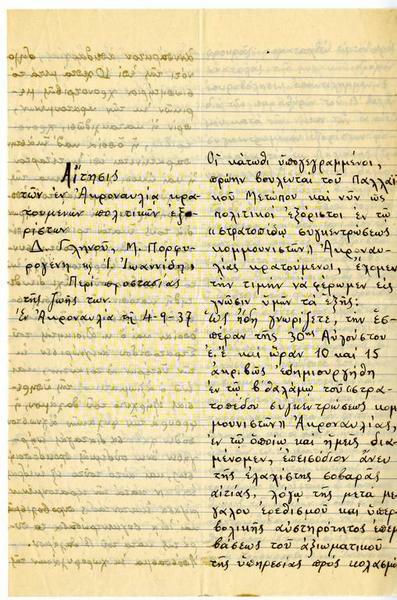 Αἴτησις
τῶν ἐν Ἀκροναυλία κρα
τουμένων πολιτικῶν ἐξο
ρίστων
Δ. Γληνοῦ, Μ. Πορφυ
ρογένη κς Ι. Ἰωαννίδη,
Περὶ προστασίας
τῆς ζωῆς των.
Ἐν Ἀκροναυλία τῇ 4-9-37
Οἱ κάτωθι ὑπογεγραμμένοι,
πρώην βουλευταὶ τοῦ Παλλαϊ
κοῦ Μετώπου καὶ νῦν ὡς
πολιτικοὶ ἐξόριστοι ἐν τῷ
«στρατοπέδῳ συγκεντρώσεως
κομμουνιστῶν» Ἀκροναυ
λίας κρατούμενοι, ἔχομεν
τὴν τιμὴν νὰ φέρωμεν εἰς
γνῶσιν ὑμῶν τὰ ἑξῆς:
Ὡς ἤδη γνωρίζετε, τὴν ἑσ
πέραν τῆς 30ης Αὐγούστου
ἐ.ἔ καὶ ὥραν 10 καὶ 15
ἀκριβῶς ἐδημιουργήθη
ἐν τῷ β΄ θαλάμῳ τοῦ «στρα
τοπέδου συγκεντρώσεως κομ
μουνιστῶν» Ἀκροναυλίας,
ἐν τῷ ὁποίῳ καὶ ἡμεῖς δια
μένομεν, ἐπεισόδιον ἄνευ
τῆς ἐλαχίστης σοβαρᾶς
αἰτίας, λόγῳ τῆς μετὰ με
γάλου ἐρεθισμοῦ καὶ ὑπερ
βολικῆς αὐστηρότητος ἐπεμ
βάσεως τοῦ ἀξιωματικοῦ
τῆς ὑπηρεσίας πρὸς κολασμὸ